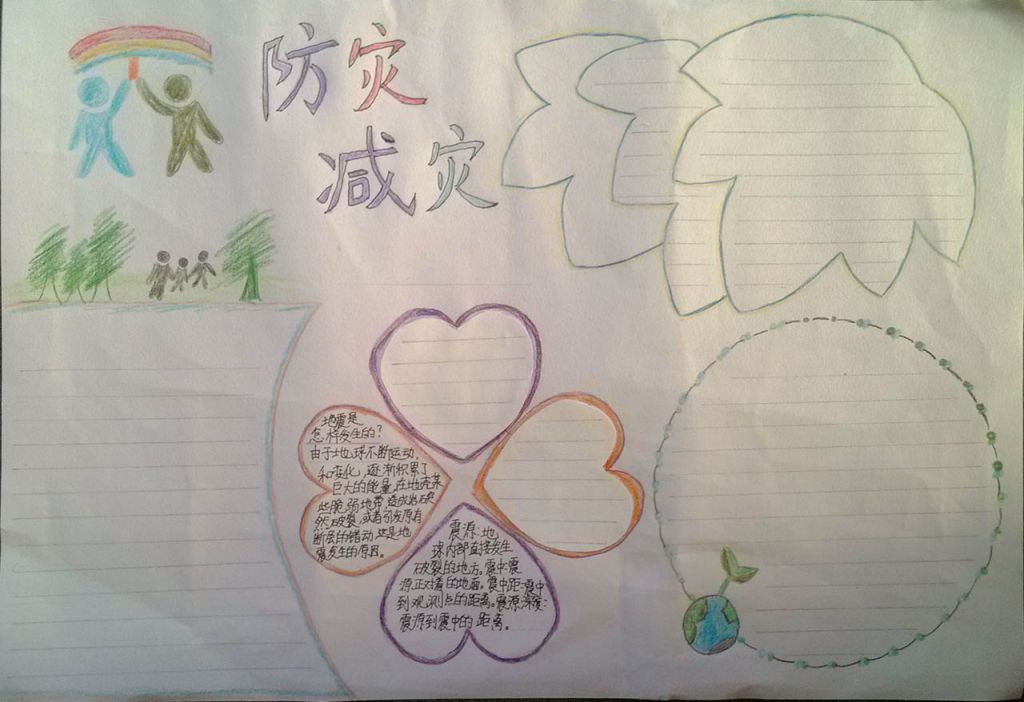 防灾
减灾
地震是
怎样发生的?
由于地球不断运动,
和变化,逐渐积累了
巨大的能量,在地壳某
些脆弱地带,造成岩石突
然破裂,或者引发原有
断层的错动,这是地
震发生的原因。
震源:地
球内部直接发生
破裂的地方。震中:震
源正对着的地面。震中距:震中
到观测点的距离。震源深度:
震源到震中的距离。